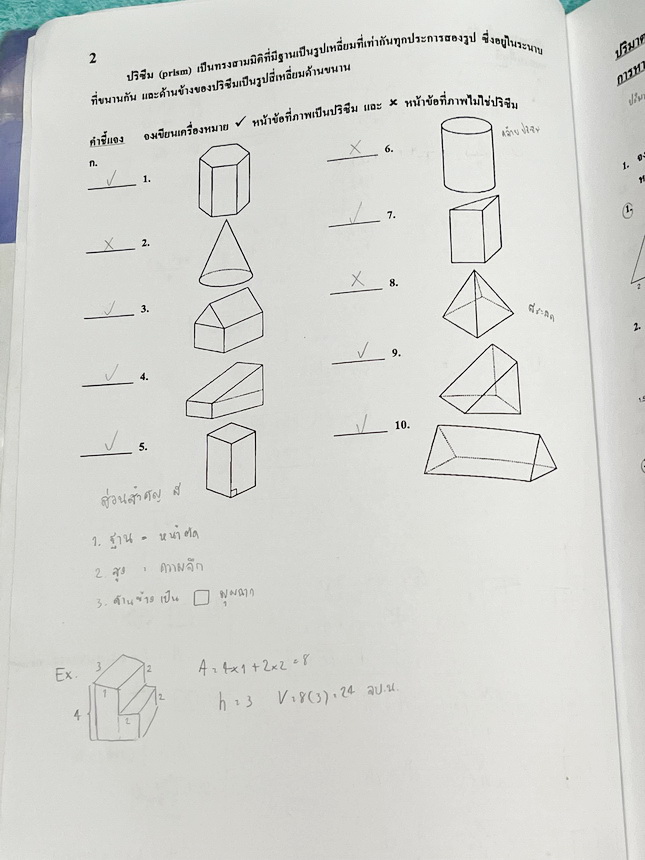 2
ปริซึม (prism) เป็นทรงสามมิติที่มีฐานเป็นรูปเหลี่ยมที่เท่ากันทุกประการสองรูป ซึ่งอยู่ในระนาบ
ที่ขนานกัน และด้านข้างของปริซึมเป็นรูปสี่เหลี่ยมด้านขนาน
คำชี้แจง จงเขียนเครื่องหมาย ✓ หน้าข้อที่ภาพเป็นปริซึม และ × หน้าข้อที่ภาพไม่ใช่ปริซึม
ก.
✓ 1.
× 2.
✓ 3.
✓ 4.
✓ 5.
× 6. คล้ายปริซึม
✓ 7.
× 8. พีระมิด
✓ 9.
✓ 10.
ส่วนสำคัญ มี
1. ฐาน = หน้าตัด
2. สูง = ความลึก
3. ด้านข้างเป็น □ มุมฉาก
Ex. 3 2 1 2 4 2
A = 4×1 + 2×2 = 8
h = 3 V = 8(3) = 24 ลบ.น.
ปริมาต
การหา
1.
1.
2
2.